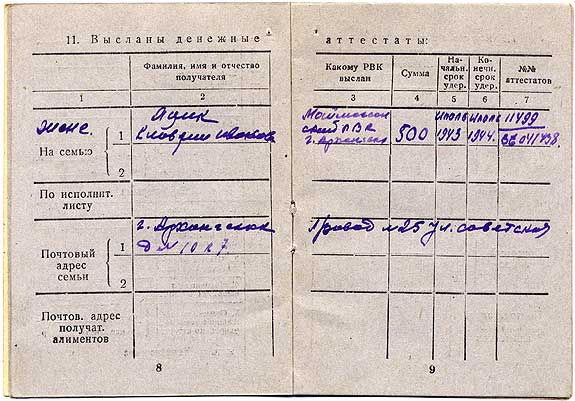 11. Высланы денежные аттестаты:
Фамилия, имя и отчество получателя
Какому РВК выслан
Сумма
На-чальн. срок удер.
Ко-нечн. срок удер.
№№ аттестатов
1 2 3 4 5 6 7
жене.
На семью
1
2
г. Архангельск
500
июль 1943
июль 1944.
11499
По исполнит. листу
Почтовый адрес семьи
1
2
г. Архангельск
д № 10 к 7
№ 25 ул. советская
Почтов. адрес получат. алиментов
8
9